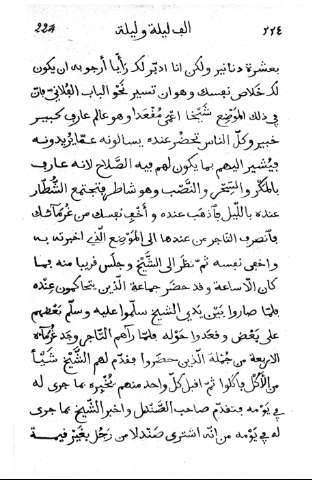 ٢٢٤ الف ليلة وليلة 224
بعشرة دنانير ولكن انا ادبّر لك رأيا أرجو به ان يكون
لك خلاص نفسك وهو ان تسير نحو الباب الفلاني فان
في ذلك الموضع شيخا اعمى مُقعدا وهو عالم عارف كبير
خبير وكلّ الناس تحضر عنده يسالونه عمّا يريدونه
فيُشير اليهم بما يكون لهم فيه الصّلاح لانه عارف
بالمكر والسّحر والنّصب وهو شاطر فتجتمع الشُّطّار
عنده بالليل فاذهب عنده وأخف نفسك من غرمآئك
فانصرف التّاجر من عندها الى الموضع الّذي اخبرته به
واخفى نفسه ثمّ نظر الى الشّيخ وجلس قريبا منه فما
كان الّا ساعة وقد حضر جماعة الّذين يتحاكمون عنده
فلمّا صاروا بين يدي الشيخ سلّموا عليه وسلّم بعضهم
على بعض وقعدوا حوله فلمّا رآهم التّاجر وجد غرمآءه
الاربعة من جُملة الّذين حضروا فقدّم لهم الشّيخ شيأ
من الأكل فاكلوا ثمّ اقبل كلّ واحد منهم يُخبره بما جرى له
في يومه فتقدّم صاحب الصّندل واخبر الشّيخ بما جرى
له في يومه من انّه اشترى صندلا من رجُل بغير قيمة